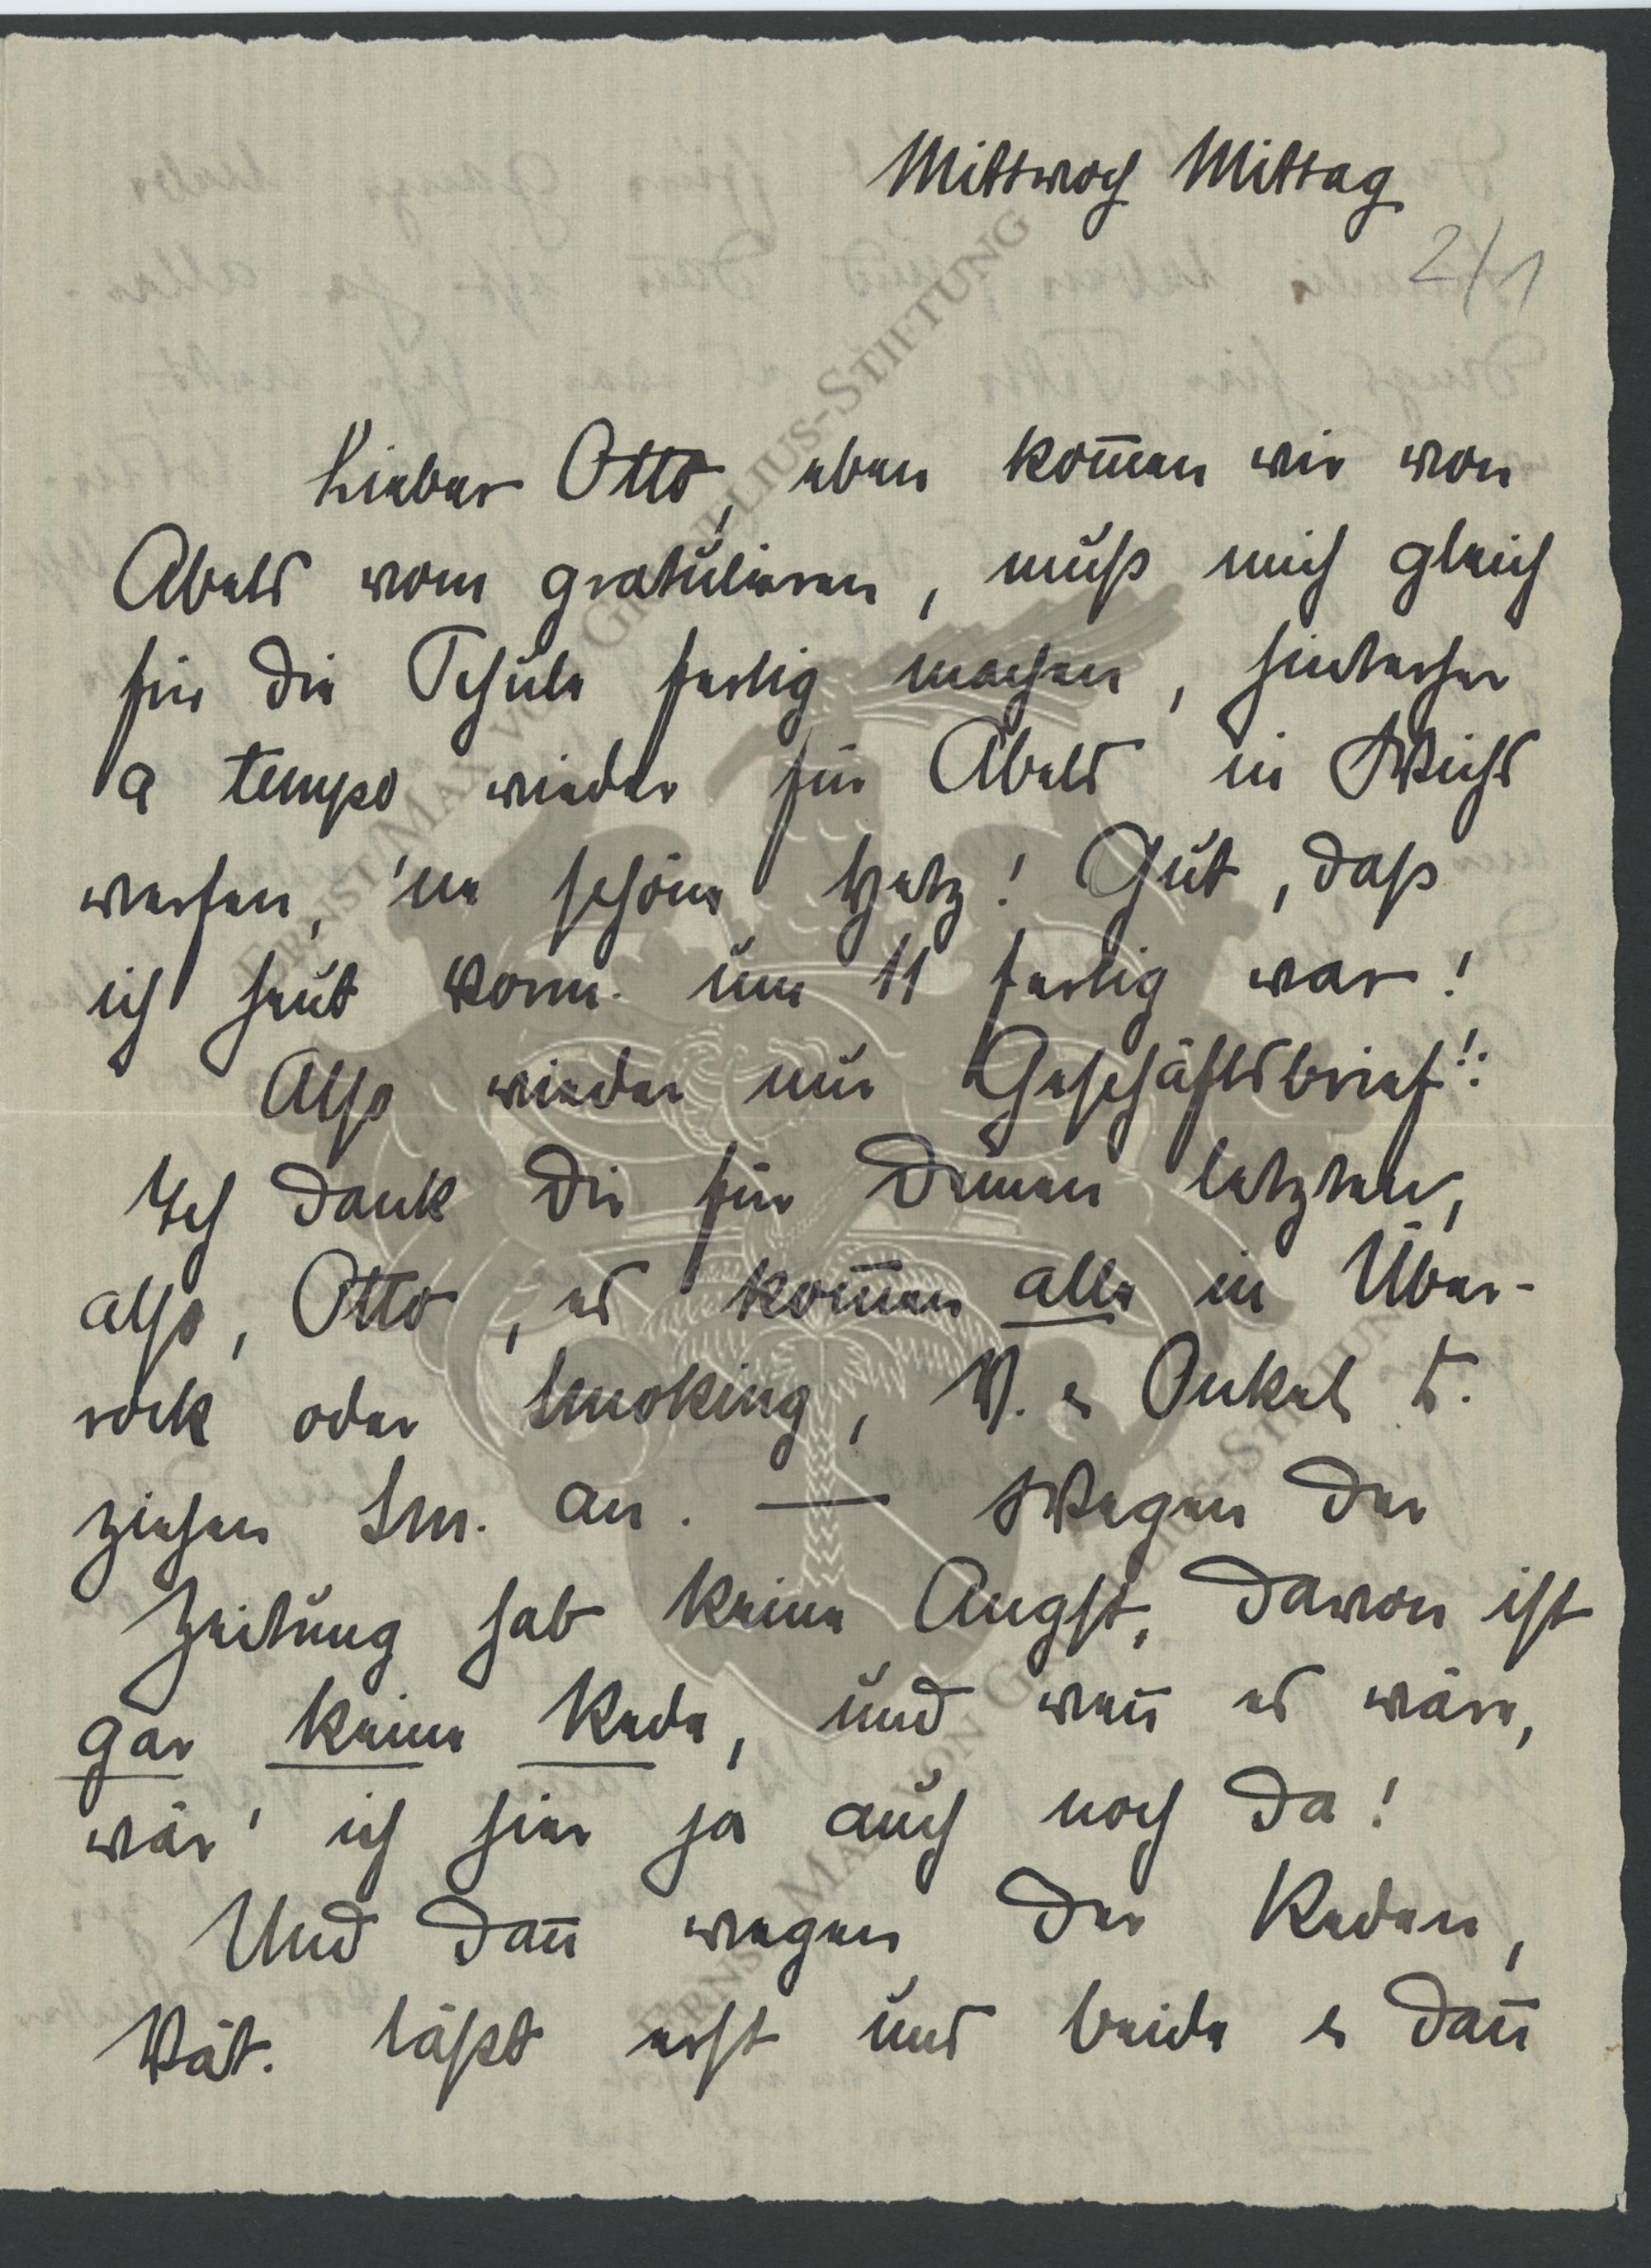 Mittwoch Mittag
2/1
Lieber Otto, eben kom̄en wir von
Abels vom gratulieren, muß mich gleich
für die Schule fertig machen, hinterher
a tempo wieder für Abels in Wichs
werfen, 'ne schöne Hetz! Gut, daß
ich heut vorm. um 11 fertig war!
Also wieder nur Geschäftsbrief!:
Ich dank Dir für Deinen letzten,
also, Otto, es kom̄en alle in Über-
rock oder Smoking, V. u Onkel
ziehen Sm. an. — Wegen der
Zeitung hab keine Angst, davon ist
gar keine Rede, und wen̄ es wäre,
wär' ich hier ja auch noch da!
Und dan̄ wegen der Reden,
Vät. läßt erst uns beide u dan̄
ERNST MAX VON GRUNELIUS-STIFTUNG
ERNST MAX VON GRUNELIUS-STIFTUNG